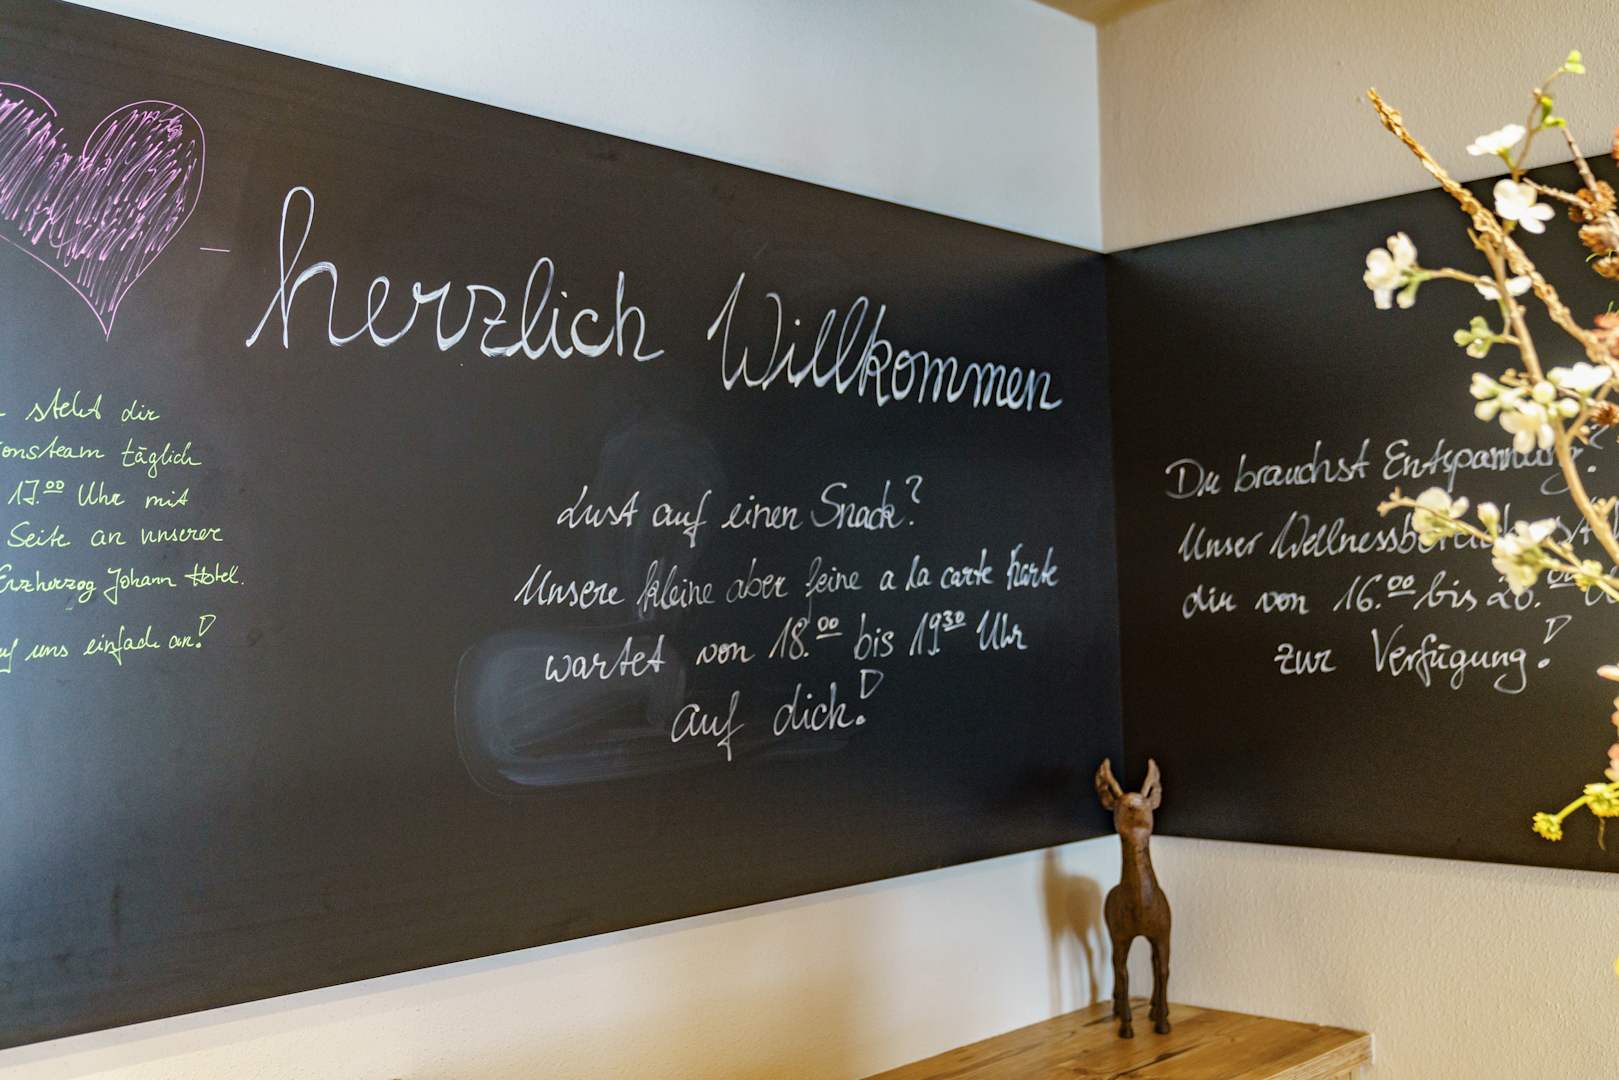 herzlich Willkommen
steht dir
täglich
17.00 Uhr mit
Seite an unserer
Erzherzog Johann Hotel.
uns einfach an!
Lust auf einen Snack?
Unsere kleine aber feine a la carte Karte
wartet von 18.00 bis 19.30 Uhr
auf dich!
Du brauchst Entspannung?
Unser Wellnessbereich
dir von 16.00 bis 20.00
zur Verfügung!